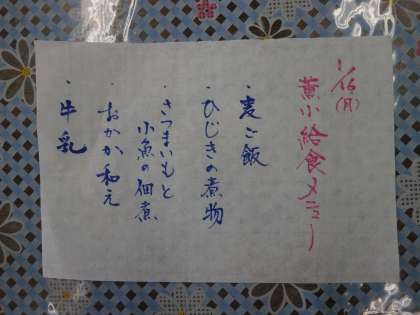 1/16(月)
薫小給食メニュー
・麦ご飯
・ひじきの煮物
・さつまいもと
小魚の佃煮
・おかか和え
・牛乳